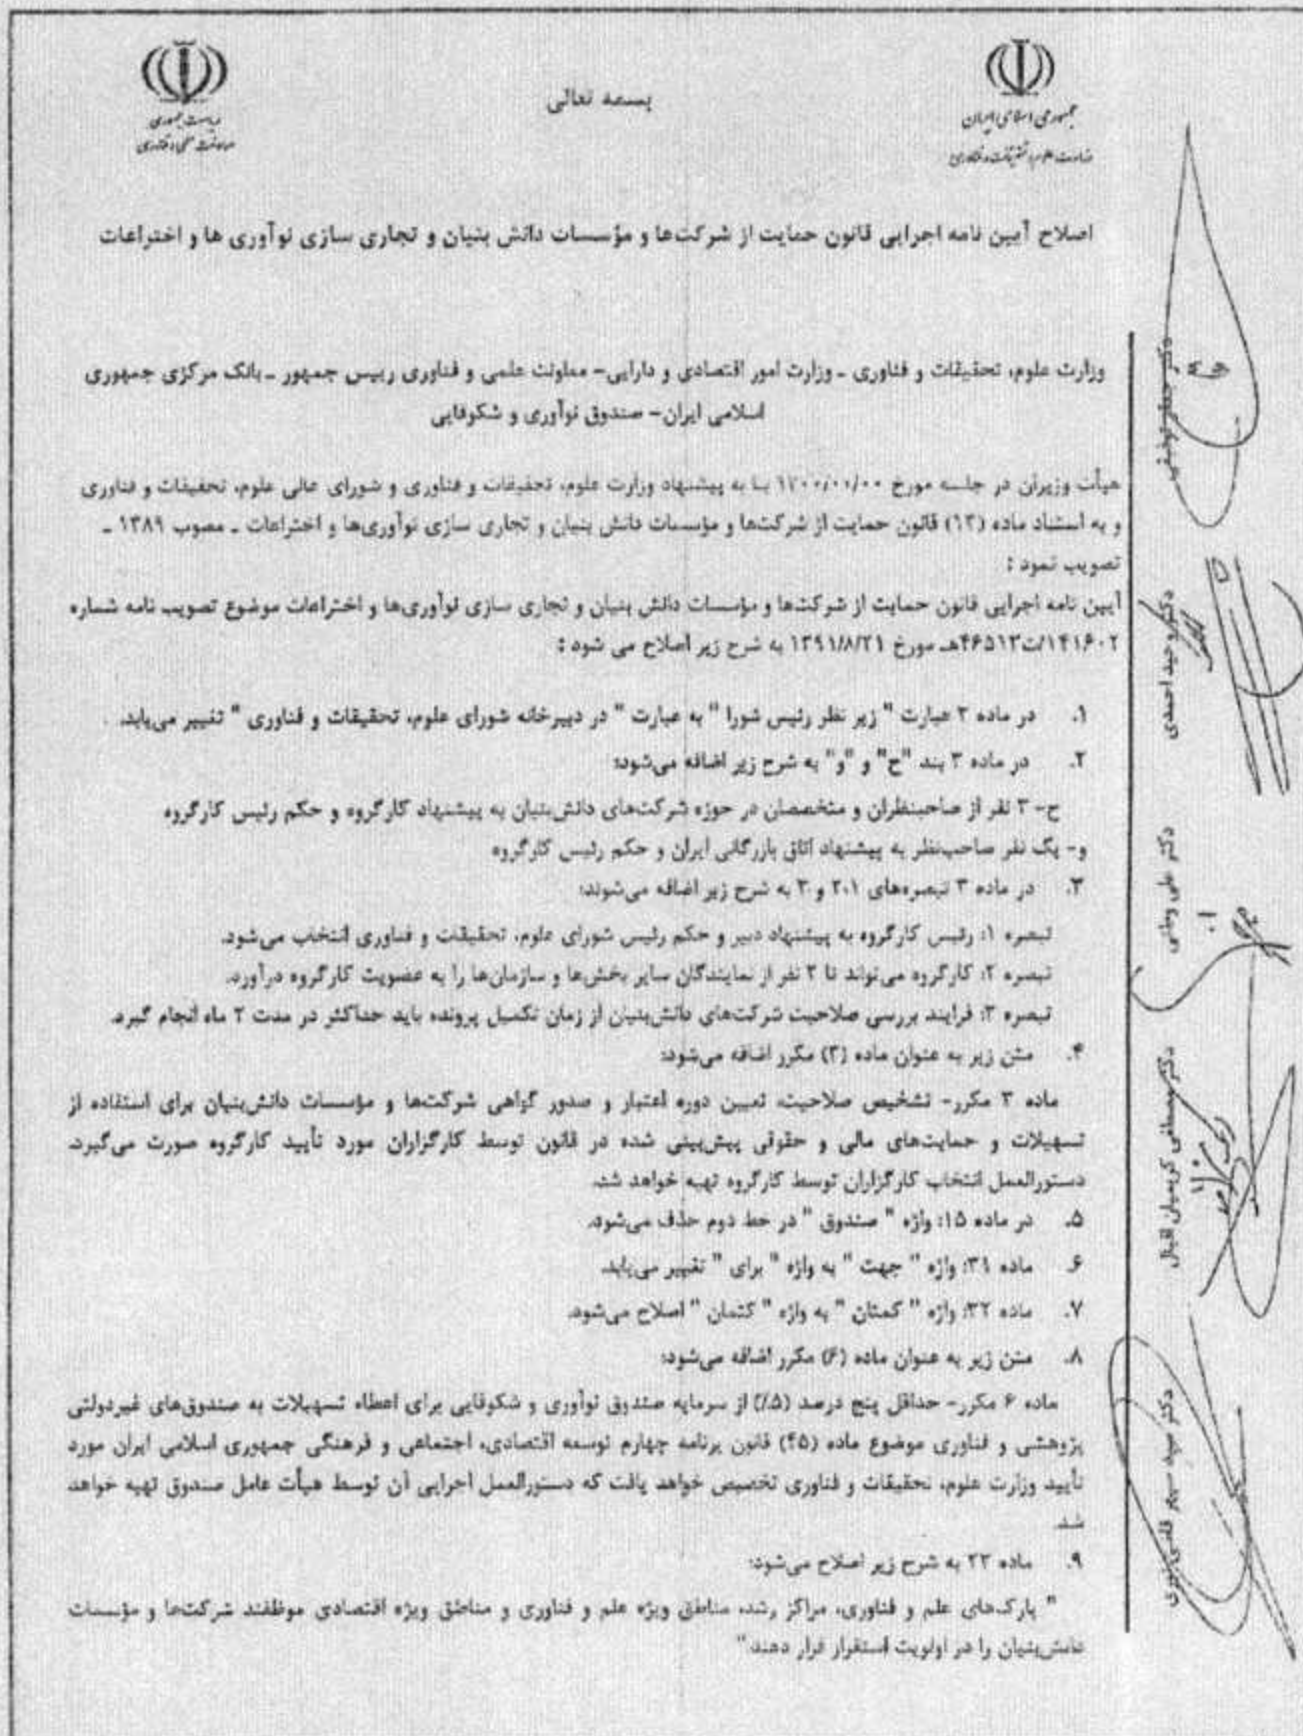 بسمه تعالی
جمهوری اسلامی ایران
وزارت علوم، تحقیقات و فناوری
ریاست جمهوری
معاونت علمی و فناوری
اصلاح آیین نامه اجرایی قانون حمایت از شرکت‌ها و مؤسسات دانش بنیان و تجاری سازی نوآوری ها و اختراعات
وزارت علوم، تحقیقات و فناوری ـ وزارت امور اقتصادی و دارایی- معاونت علمی و فناوری رییس جمهور ـ بانک مرکزی جمهوری
اسلامی ایران- صندوق نوآوری و شکوفایی
هیأت وزیران در جلسه مورخ بنا به پیشنهاد وزارت علوم، تحقیقات و فناوری و شورای عالی علوم، تحقیقات و فناوری
و به استناد ماده (۱۳) قانون حمایت از شرکت‌ها و مؤسسات دانش بنیان و تجاری سازی نوآوری‌ها و اختراعات ـ مصوب ۱۳۸۹ ـ
تصویب نمود :
آیین نامه اجرایی قانون حمایت از شرکت‌ها و مؤسسات دانش بنیان و تجاری سازی نوآوری‌ها و اختراعات موضوع تصویب نامه شماره
۱۴۱۶۰۲/ت۴۶۵۱۳هـ مورخ ۱۳۹۱/۸/۲۱ به شرح زیر اصلاح می شود :
۱. در ماده ۲ عبارت " زیر نظر رئیس شورا " به عبارت " در دبیرخانه شورای علوم، تحقیقات و فناوری " تغییر می‌یابد.
۲. در ماده ۳ بند "ح" و "و" به شرح زیر اضافه می‌شود:
ح- ۳ نفر از صاحبنظران و متخصصان در حوزه شرکت‌های دانش‌بنیان به پیشنهاد کارگروه و حکم رئیس کارگروه
و- یک نفر صاحب‌نظر به پیشنهاد اتاق بازرگانی ایران و حکم رئیس کارگروه
۳. در ماده ۳ تبصره‌های ۲،۱ و ۳ به شرح زیر اضافه می‌شوند:
تبصره ۱: رئیس کارگروه به پیشنهاد دبیر و حکم رئیس شورای علوم، تحقیقات و فناوری انتخاب می‌شود.
تبصره ۲: کارگروه می‌تواند تا ۲ نفر از نمایندگان سایر بخش‌ها و سازمان‌ها را به عضویت کارگروه درآورد.
تبصره ۳: فرایند بررسی صلاحیت شرکت‌های دانش‌بنیان از زمان تکمیل پرونده باید حداکثر در مدت ۲ ماه انجام گیرد.
۴. متن زیر به عنوان ماده (۳) مکرر اضافه می‌شود:
ماده ۳ مکرر- تشخیص صلاحیت، تعیین دوره اعتبار و صدور گواهی شرکت‌ها و مؤسسات دانش‌بنیان برای استفاده از
تسهیلات و حمایت‌های مالی و حقوقی پیش‌بینی شده در قانون توسط کارگزاران مورد تأیید کارگروه صورت می‌گیرد.
دستورالعمل انتخاب کارگزاران توسط کارگروه تهیه خواهد شد.
۵. در ماده ۱۵: واژه " صندوق " در خط دوم حذف می‌شود.
۶. ماده ۳۱: واژه " جهت " به واژه " برای " تغییر می‌یابد.
۷. ماده ۳۲: واژه " کمتان " به واژه " کتمان " اصلاح می‌شود.
۸. متن زیر به عنوان ماده (۶) مکرر اضافه می‌شود:
ماده ۶ مکرر- حداقل پنج درصد (۵٪) از سرمایه صندوق نوآوری و شکوفایی برای اعطاء تسهیلات به صندوق‌های غیردولتی
پژوهشی و فناوری موضوع ماده (۴۵) قانون برنامه چهارم توسعه اقتصادی، اجتماعی و فرهنگی جمهوری اسلامی ایران مورد
تأیید وزارت علوم، تحقیقات و فناوری تخصیص خواهد یافت که دستورالعمل اجرایی آن توسط هیأت عامل صندوق تهیه خواهد
شد.
۹. ماده ۲۳ به شرح زیر اصلاح می‌شود:
" پارک‌های علم و فناوری، مراکز رشد، مناطق ویژه علم و فناوری و مناطق ویژه اقتصادی موظفند شرکت‌ها و مؤسسات
دانش‌بنیان را در اولویت استقرار قرار دهند"
دکتر جعفر توفیقی
دکتر وحید احمدی
دکتر علی وطنی
دکتر مصطفی کریمیان اقبال
دکتر سید سپهر قاضی نوری